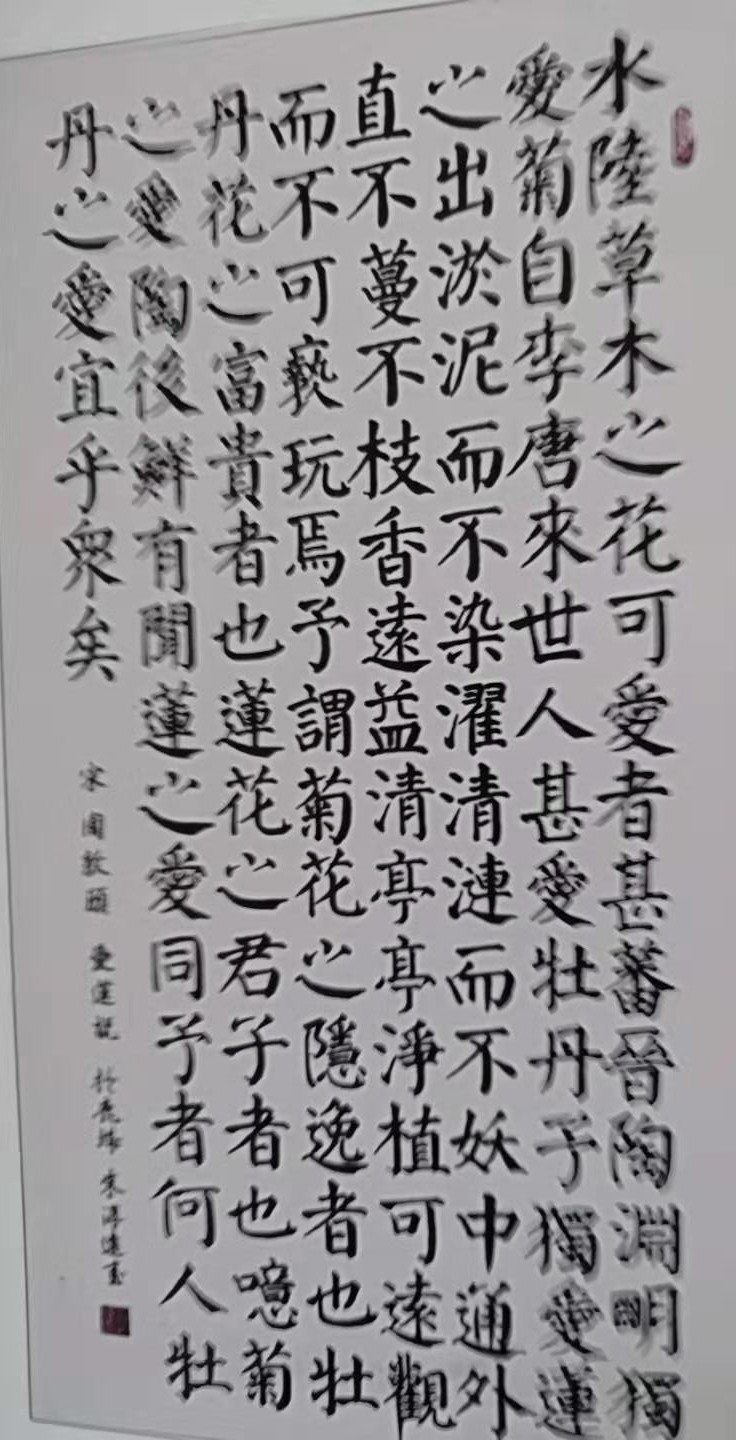 水陸草木之花可愛者甚蕃晉陶淵明獨
愛菊自李唐來世人甚愛牡丹予獨愛蓮
之出淤泥而不染濯清漣而不妖中通外
直不蔓不枝香遠益清亭亭淨植可遠觀
而不可褻玩焉予謂菊花之隱逸者也牡
丹花之富貴者也蓮花之君子者也噫菊
之愛陶後鮮有聞蓮之愛同予者何人牡
丹之愛宜乎衆矣
宋周敦頤 愛蓮說 於